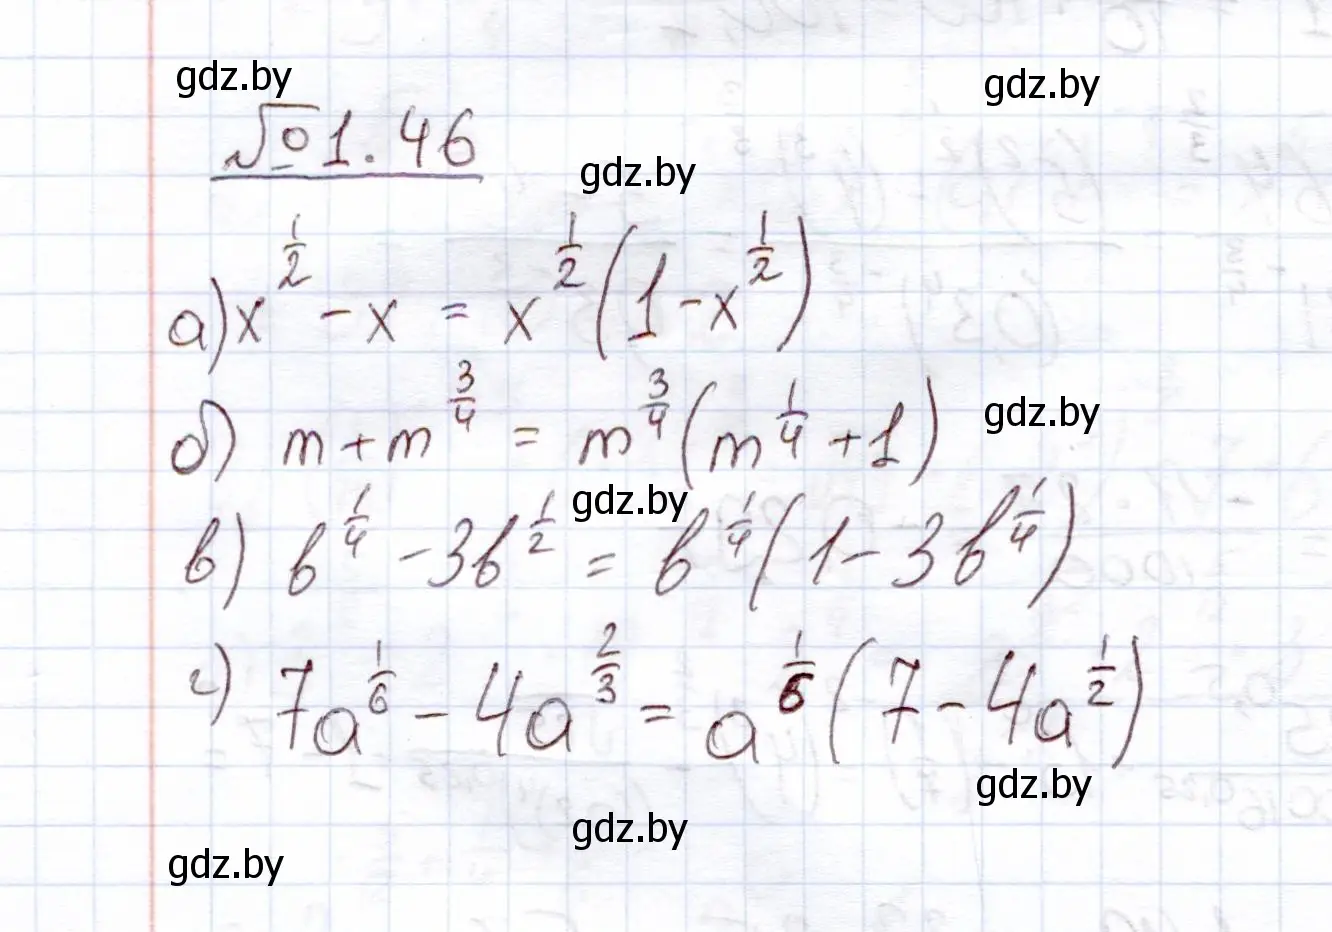 gdz.by
gdz.by
№1.46
gdz.by
а) x^{\frac{1}{2}} - x = x^{\frac{1}{2}}(1 - x^{\frac{1}{2}})
б) m + m^{\frac{3}{4}} = m^{\frac{3}{4}}(m^{\frac{1}{4}} + 1)
gdz.by
gdz.by
в) b^{\frac{1}{4}} - 3b^{\frac{1}{2}} = b^{\frac{1}{4}}(1 - 3b^{\frac{1}{4}})
г) 7a^{\frac{1}{6}} - 4a^{\frac{2}{3}} = a^{\frac{1}{6}}(7 - 4a^{\frac{1}{2}})
gdz.by
gdz.by
gdz.by